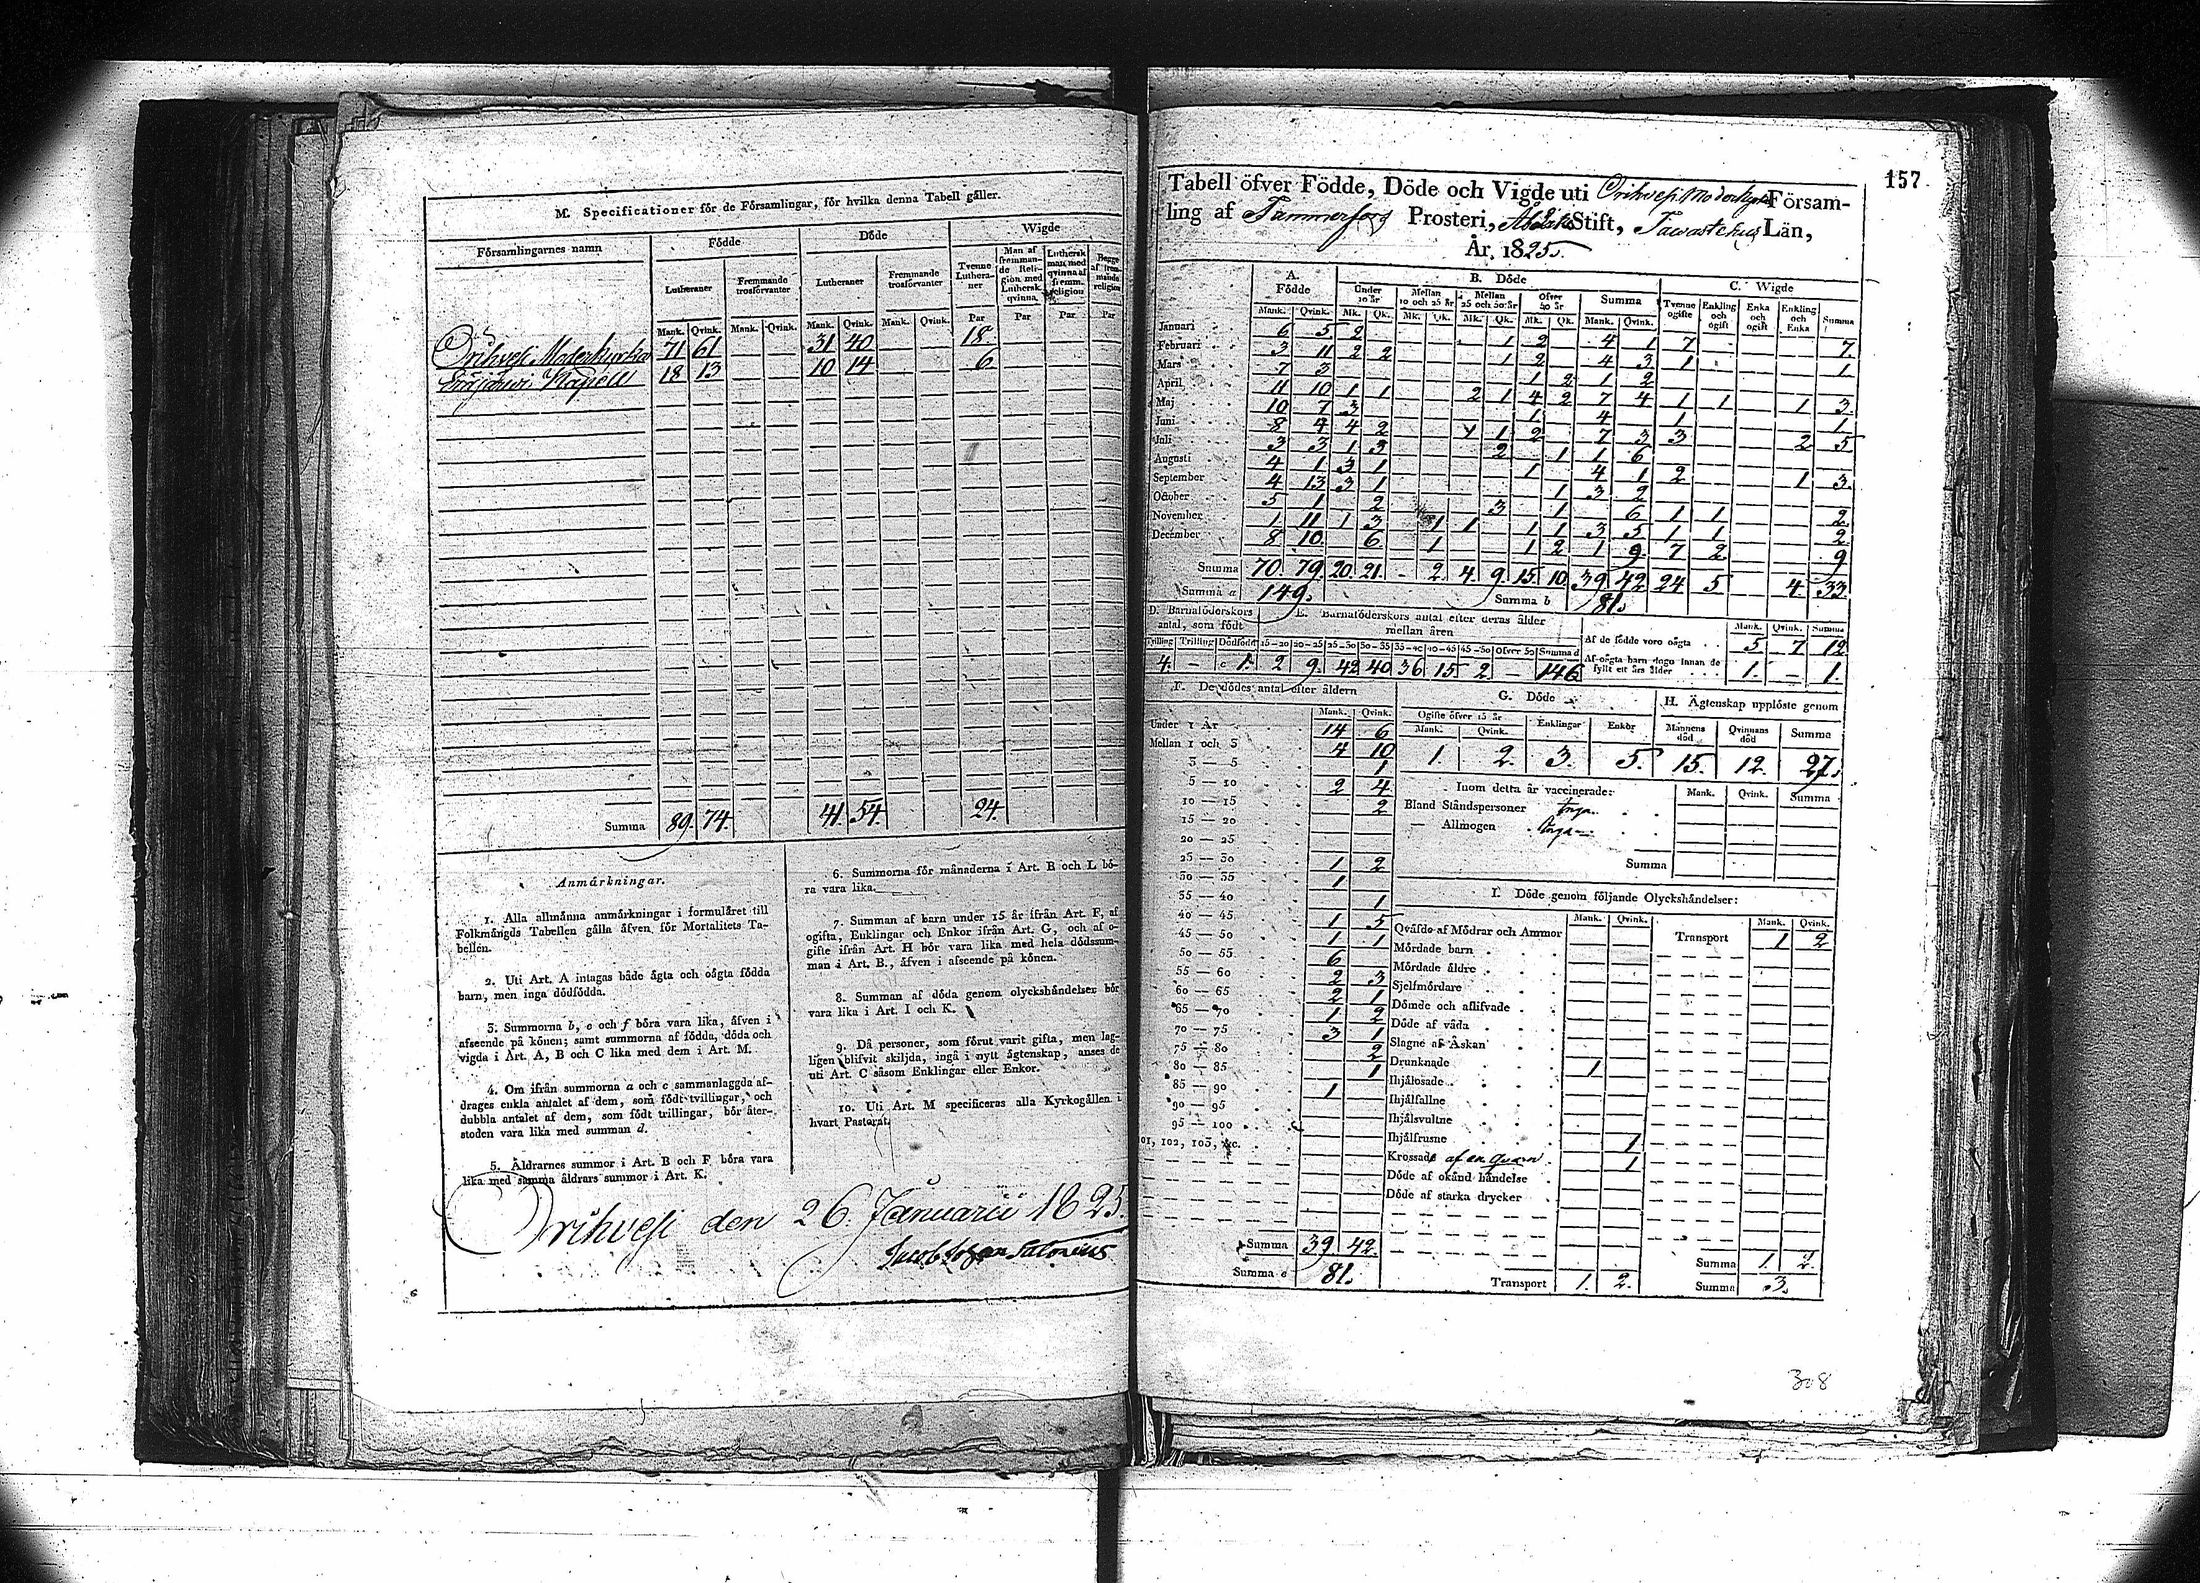 M. Specificationer för de Församlingar, för hvilka denna Tabell gäller.
Församlingarnes namn Födde Döde Wigde
Lutheraner Fremmande trosförvanter Lutheraner Fremmande trosförvanter Tvenne Lutheraner Man af fremmande Religion med Luthersk qvinna Luthersk man med qvinna af fremm. religion Begge af fremmande religion
Mank. Qvink. Mank. Qvink. Mank. Qvink. Mank. Qvink. Par Par Par Par
Orihvesi Moderkyrka 71 61 31 40 18.
Kapell 18 13 10 14 6
Summa 89. 74. 41. 54. 24.
Anmärkningar.
1. Alla allmänna anmärkningar i formuläret till
Folkmängds Tabellen gälla äfven för Mortalitets Ta-
bellen.
2. Uti Art. A intagas både ägta och oägta födda
barn, men inga dödfödda.
3. Summorna b, e och f böra vara lika, äfven i
afseende på könen; samt summorna af födda, döda och
vigda i Art. A, B och C lika med dem i Art. M.
4. Om ifrån summorna a och c sammanlaggda af-
drages enkla antalet af dem, som födt tvillingar, och
dubbla antalet af dem, som födt trillingar, bör åter-
stoden vara lika med summan d.
5. Åldrarnes summor i Art. B och F böra vara
lika med samma åldrars summor i Art. K.
6. Summorna för månaderna i Art. B och L bö-
ra vara lika.
7. Summan af barn under 15 år ifrån Art. F, af
ogifta, Enklingar och Enkor ifrån Art. G, och af o-
gifte ifrån Art. H bör vara lika med hela dödssum-
man i Art. B., äfven i afseende på könen.
8. Summan af döda genom olyckshändelser bör
vara lika i Art. I och K.
9. Då personer, som förut varit gifta, men lag-
ligen blifvit skiljda, ingå i nytt ägtenskap, anses de
uti Art. C såsom Enklingar eller Enkor.
10. Uti Art. M specificeras alla Kyrkogällen i
hvart Pastorat.
Orihvesi den 26. Januarii 1825.
Jacob Johan Salonius
157
Tabell öfver Födde, Döde och Vigde uti Orihvesi Moderkyrko Församling
ling af Tammerfors Prosteri, Åbo Stift, Tawastehus Län,
År, 1825.
A. Födde B. Döde C. Wigde
Under 10 år Mellan 10 och 25 år Mellan 25 och 50 år Öfver 50 år Summa Tvenne ogifte Enkling och ogift Enka och ogift Enkling och Enka Summa
Mank. Qvink. Mk. Qk. Mk. Qk. Mk. Qk. Mk. Qk. Mank. Qvink.
Januari 6 5 2 1 2 4 1 7 7.
Februari 3 11 2 2 1 2 4 3 1 1.
Mars 7 3 1 2 1 2
April 11 10 1 1 2 1 4 2 7 4 1 1 1 3.
Maj 10 7 3 1 4 1 1.
Juni 8 4 4 2 1 1 2 7 3 3 2 5
Juli 3 3 1 3 2 1 1 6
Augusti 4 1 3 1 1 4 1 2 1 3.
September 4 13 3 1 1 3 2
October 5 1 2 3 1 6 1 1 2
November 1 11 1 3 1 1 1 1 3 5 1 1 2
December 8 10 6 1 1 2 1 9 7 2 9
Summa 70. 79. 20. 21. - 2. 4. 9. 15. 10. 39. 42. 24 5 4 33.
Summa a 149. Summa b 81.
D. Barnaföderskors antal, som födt E. Barnaföderskors antal efter deras ålder mellan åren
Trilling Dödfödd 15—20 20—25 25—30 30—35 35—40 40—45 45—50 Öfver 50 Summa d
4. — c 1. 2 9. 42 40 36 15 2 — 146
Mank. Qvink. Summa
Af de födde voro oägta 5 7 12
Af oägta barn dogo innan de fyllt ett års ålder 1. — 1.
F. De dödes antal efter åldern
Mank. Qvink.
Under 1 År 14 6
Mellan 1 och 3 4 10
3 — 5 1
5 — 10 2 4
10 — 15 2
15 — 20
20 — 25
25 — 30 1 2
30 — 35 1
35 — 40 1
40 — 45 1 5
45 — 50 1 1
50 — 55 6
55 — 60 2 3
60 — 65 2 1
65 — 70 1 2
70 — 75 3 1
75 — 80 2
80 — 85 1
85 — 90 1
90 — 95
95 — 100
101, 102, 103, &c.
Summa 39 42.
Summa e 81.
G. Döde
Ogifte öfver 15 år Enklingar Enkor
Mank. Qvink.
1. 2. 3. 5.
H. Ägtenskap upplöste genom
Männens död Qvinnans död Summa
15. 12. 27.
Inom detta år vaccinerade: Mank. Qvink. Summa
Bland Ståndspersoner inga
— Allmogen inga
Summa
I. Döde genom följande Olyckshändelser:
Mank. Qvink. Mank. Qvink.
Qväfde af Mödrar och Ammor Transport 1 2
Mördade barn
Mördade äldre
Sjelfmördare
Dömde och aflifvade
Döde af våda
Slagne af Åskan
Drunknade 1
Ihjälosade
Ihjälfallne
Ihjälsvultne
Ihjälfrusne 1
Krossade af en Qvarn 1
Döde af okänd händelse
Döde af starka drycker
Summa 1. 2.
Transport 1. 2. Summa 3.
308